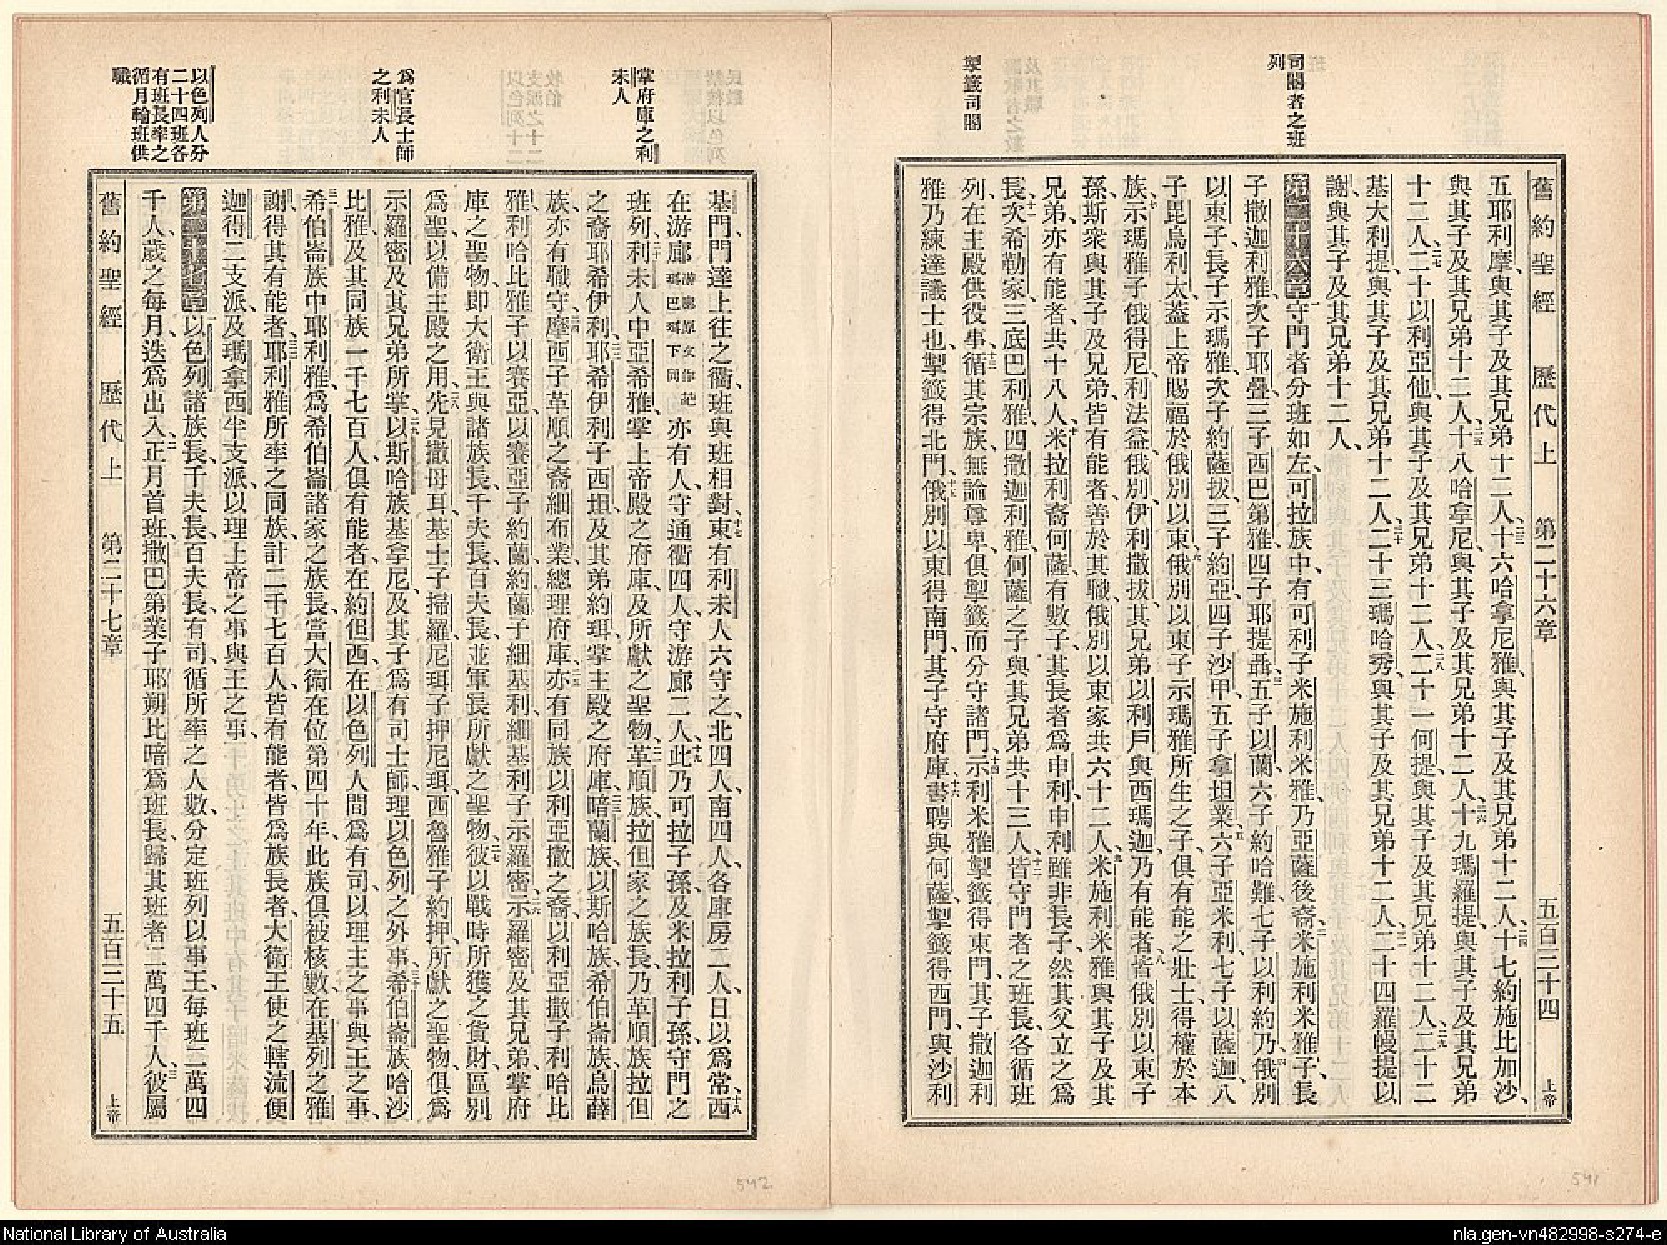 司閽者之班
列
掣籤司閽
舊約聖經 歷代上 第二十六章 五百三十四 上帝
五耶利摩、與其子及其兄弟十二人、十六哈拿尼雅、與其子及其兄弟十二人、十七約施比加沙、
與其子及其兄弟十二人、十八哈拿尼、與其子及其兄弟十二人、十九瑪羅提、與其子及其兄弟
十二人、二十以利亞他、與其子及其兄弟十二人、二十一何提、與其子及其兄弟十二人、二十二
基大利提、與其子及其兄弟十二人、二十三瑪哈秀、與其子及其兄弟十二人、二十四羅幔提以
謝、與其子及其兄弟十二人、
第二十六章守門者分班如左、可拉族中、有可利子米施利米雅、乃亞薩後裔、米施利米雅子、長
子撒迦利雅、次子耶疊、三子西巴第雅、四子耶提聶、五子以蘭、六子約哈難、七子以利約乃、俄別
以東子、長子示瑪雅、次子約薩拔、三子約亞、四子沙甲、五子拿坦業、六子亞米利、七子以薩迦、八
子毘烏利太、蓋上帝賜福於俄別以東、俄別以東子示瑪雅所生之子、俱有能之壯士、得權於本
族、示瑪雅子俄得尼、利法益、俄別、伊利撒拔、其兄弟以利戶、與西瑪迦、乃有能者、皆俄別以東子
孫、斯衆與其子及兄弟、皆有能者、善於其職、俄別以東家共六十二人、米施利米雅與其子及其
兄弟、亦有能者、共十八人、米拉利裔何薩、有數子、其長者爲申利、申利雖非長子、然其父立之爲
長、次希勒家、三底巴利雅、四撒迦利雅、何薩之子、與其兄弟共十三人、皆守門者之班長、各循班
列、在主殿供役事、循其宗族、無論尊卑、俱掣籤而分守諸門、示利米雅掣籤得東門、其子撒迦利
雅、乃練達議士也、掣籤得北門、俄別以東得南門、其子守府庫、書聘與何薩、掣籤得西門、與沙利
掌府庫之利
未人
爲官長士師
之利未人
以色列人分
二十四班各
有班長率之
循月輪班供
職
基門、門達上往之衢、班與班相對、東有利未人六守之、北四人、南四人、各庫房二人、日以爲常、西
在游廊、亦有人守通衢四人、守游廊二人、此乃可拉子孫、及米拉利子孫、守門之
班列、利未人中亞希雅、掌上帝殿之府庫、及所獻之聖物、革順族、拉但家之族長、乃革順族拉但
之裔耶希伊利、耶希伊利子西坦、及其弟約珥、掌主殿之府庫、暗蘭族、以斯哈族、希伯崙族、烏薛
族、亦有職守、摩西子革順之裔細布業、總理府庫、亦有同族以利亞撒之裔、以利亞撒子利哈比
雅、利哈比雅子以賽亞、以賽亞子約蘭、約蘭子細基利、細基利子示羅密、示羅密及其兄弟、掌府
庫之聖物、即大衛王與諸族長、千夫長、百夫長、並軍長所獻之聖物、彼以戰時所獲之貨財、區別
爲聖、以備主殿之用、先見撒母耳、基士子掃羅、尼珥子押尼珥、西魯雅子約押、所獻之聖物、俱爲
示羅密及其兄弟所掌、以斯哈族基拿尼、及其子爲有司士師、理以色列之外事、希伯崙族哈沙
比雅、及其同族一千七百人、俱有能者、在約但西、在以色列人間爲有司、以理主之事與王之事、
希伯崙族中耶利雅、爲希伯崙諸家之族長、當大衛在位第四十年、此族俱被核數、在基列之雅
謝、得其有能者、耶利雅所率之同族、計二千七百人、皆有能者、皆爲族長者、大衛王使之轄流便、
迦得二支派、及瑪拿西半支派、以理上帝之事、與王之事、
第二十七章以色列諸族長、千夫長、百夫長、有司、循所率之人數、分定班列以事王、每班二萬四
千人、歲之每月、迭爲出入、正月首班、撒巴第業子耶朔比暗爲班長、歸其班者二萬四千人、彼屬
舊約聖經 歷代上 第二十七章 五百三十五 上帝
542
541
National Library of Australia
nla.gen-vn482998-s274-e